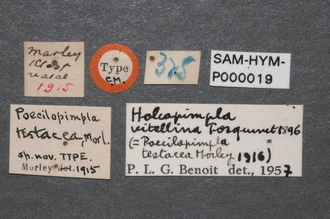 Marley
1915
Type
C.M.
325
SAM-HYM-
P000019
Poecilopimpla
testacea, Morl.
sh. nov. TYPE.
Morley det. 1915
Holcopimpla
vitellina Torquinet 1896
(=Poecilopimpla
testacea Morley 1916)
P. L. G. Benoit det., 1957